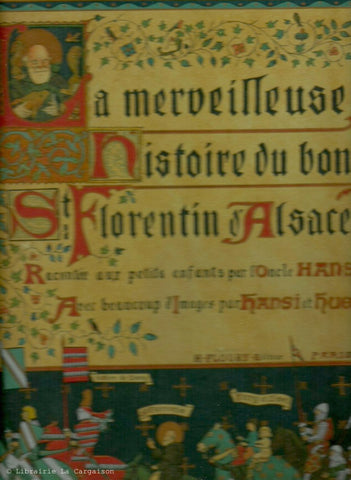 La merveilleuse
histoire du bon
St. Florentin d'Alsace
Racontée aux petits enfants par l'Oncle HANSI
Avec beaucoup d'Images par HANSI et HUEN
H. FLOURY Editeur PARIS
© Librairie La Cargaison